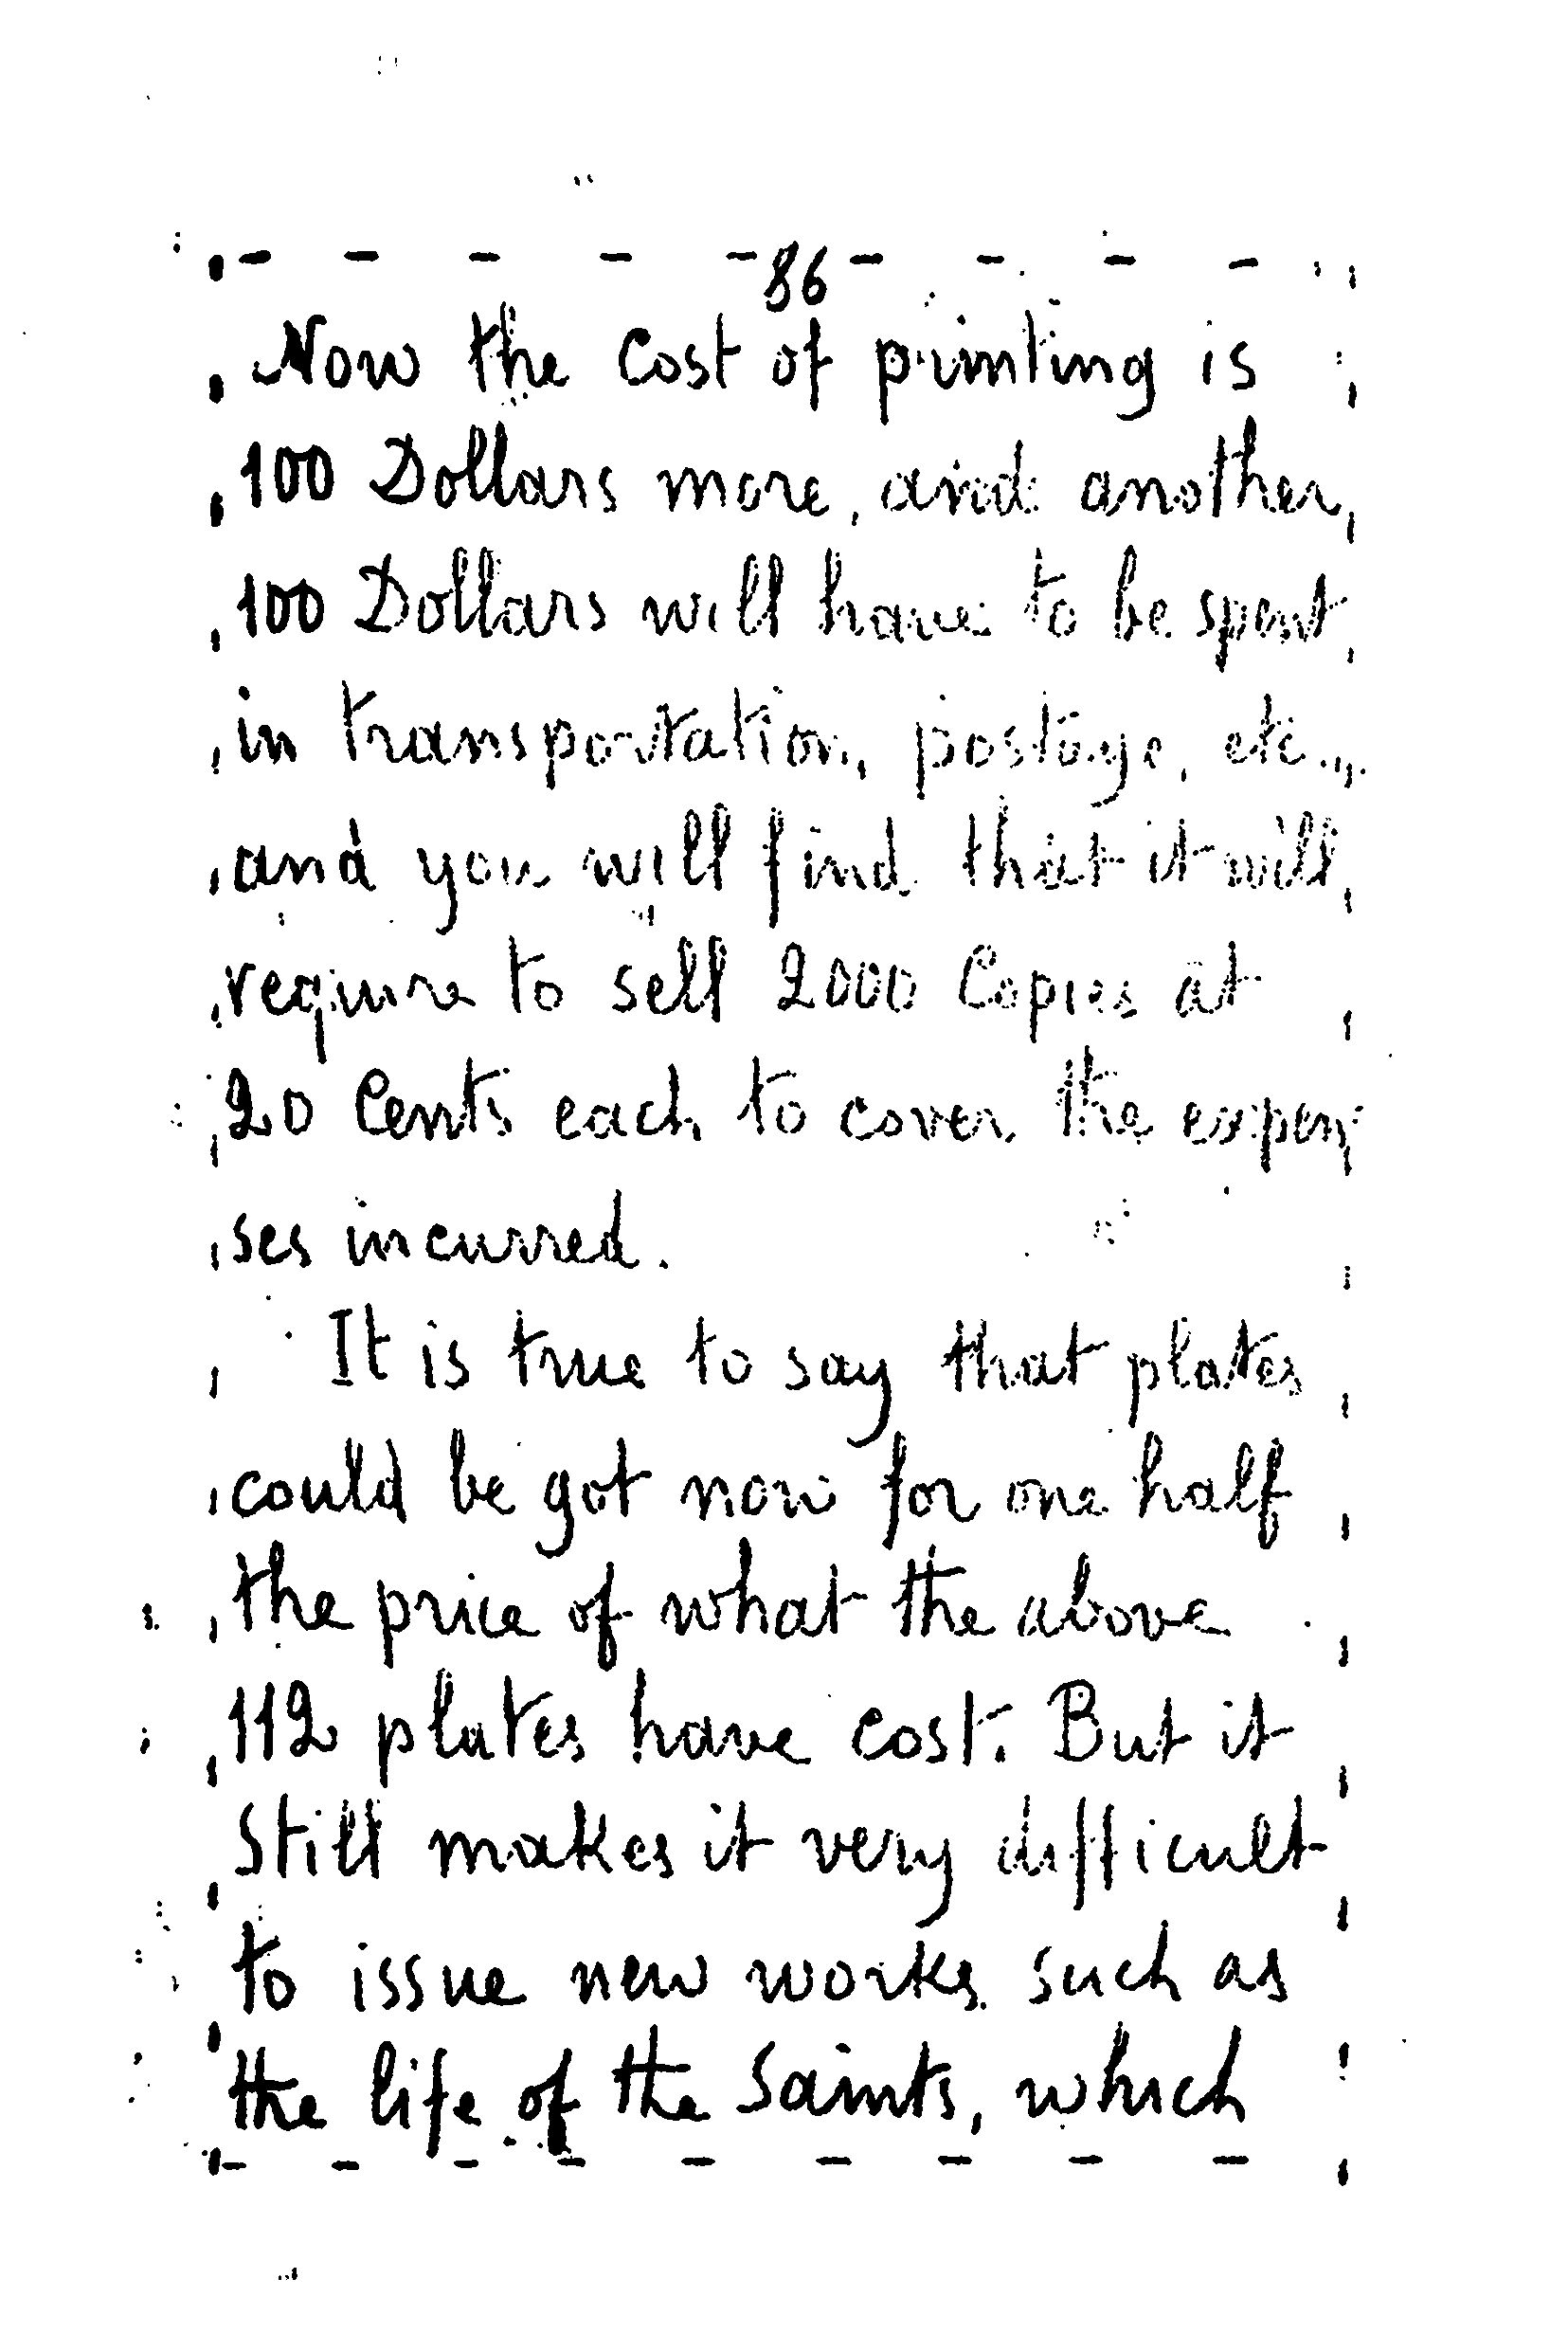 86
Now the Cost of printing is
100 Dollars more, and another
100 Dollars will have to be spent
in transportation, postage, etc.,
and you will find that it will
require to sell 2000 Copies at
20 Cents each to cover the expen
ses incurred.
It is true to say that plates
could be got now for one half
the price of what the above
112 plates have cost. But it
Still makes it very difficult
to issue new works such as
the life of the Saints, which